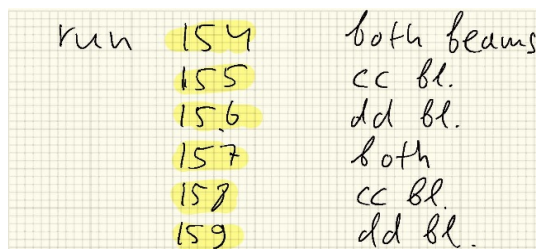 run 154 both beams
155 cc bl.
156 dd bl.
157 both
158 cc bl.
159 dd bl.